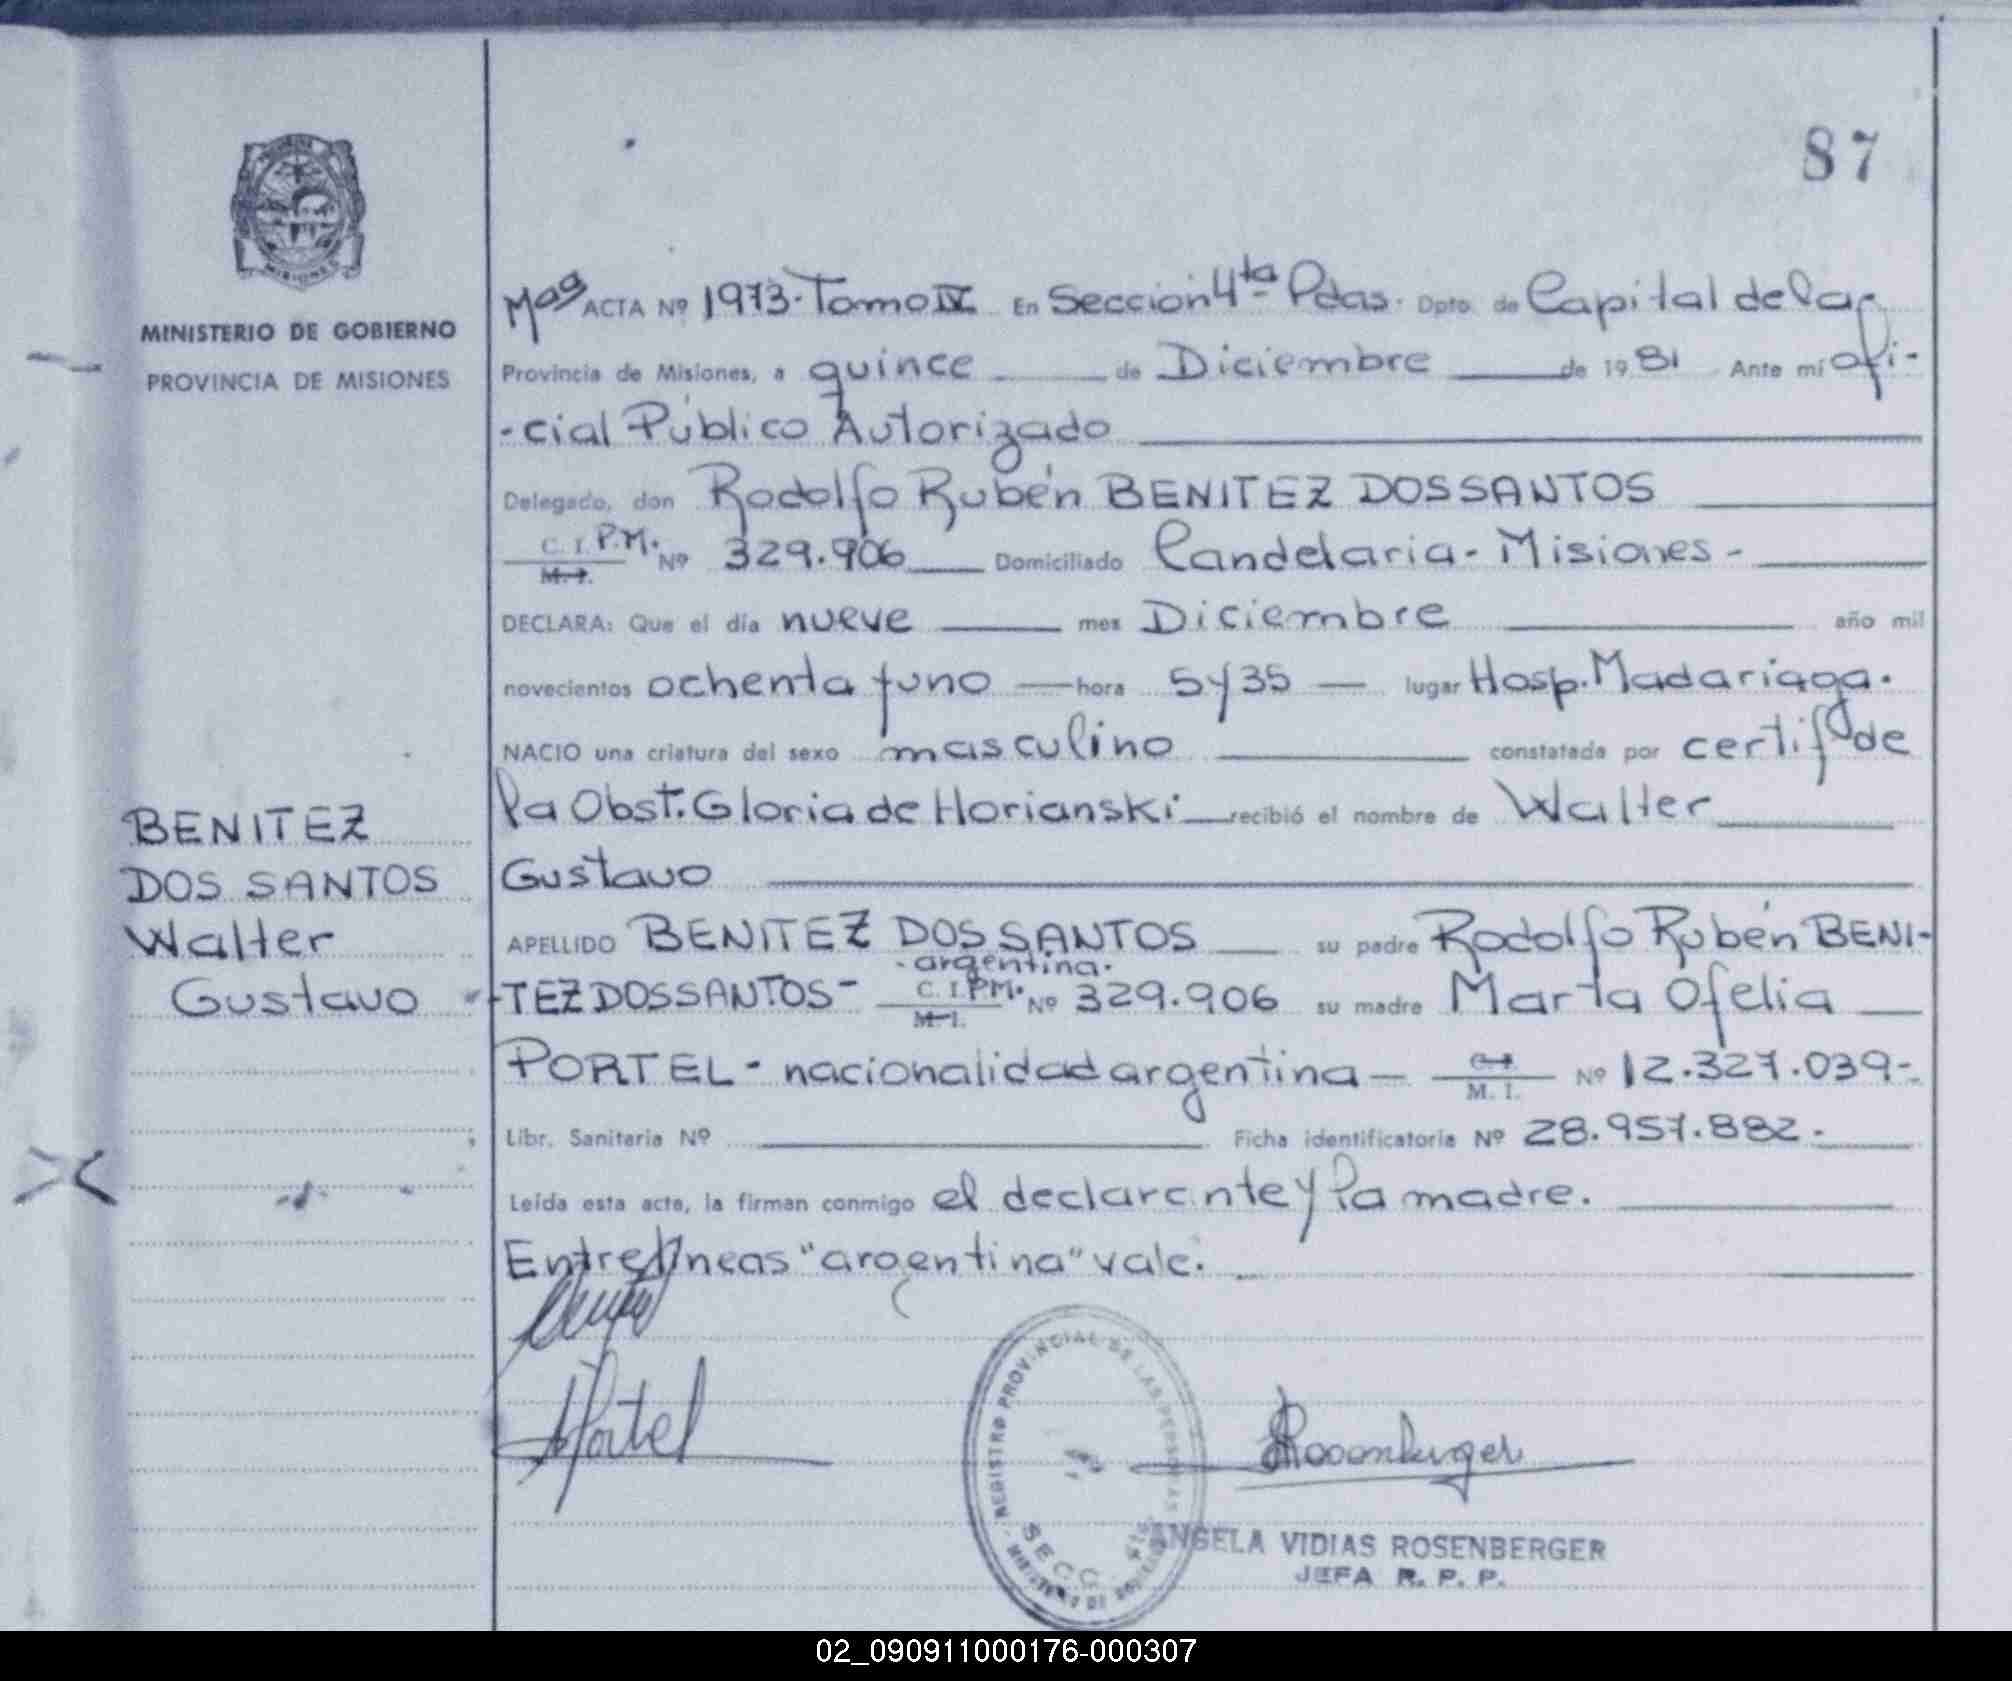 87
MISIONES
MINISTERIO DE GOBIERNO
PROVINCIA DE MISIONES
Mag ACTA Nº 1973-Tomo IV En Sección 4ta Pdas. Dpto. de Capital de la
Provincia de Misiones, a quince de Diciembre de 1981 Ante mí ofi-
-cial Público Autorizado
Delegado, don Rodolfo Rubén BENITEZ DOS SANTOS
C. I. P.M. M. I. Nº 329.906 Domiciliado Candelaria - Misiones -
DECLARA: Que el día nueve mes Diciembre año mil
novecientos ochenta y uno hora 5 y 35 lugar Hosp. Madariaga.
NACIO una criatura del sexo masculino constatada por certif de
la Obst. Gloria de Horianski recibió el nombre de Walter
Gustavo
APELLIDO BENITEZ DOS SANTOS su padre Rodolfo Rubén BENI-
-argentina.
TEZ DOS SANTOS - C. I. P.M. M. I. Nº 329.906 su madre Marta Ofelia
PORTEL - nacionalidad argentina - C. I. M. I. Nº 12.327.039-
Libr. Sanitaria Nº Ficha identificatoria Nº 28.957.882.-
Leída esta acta, la firman conmigo el declarante y la madre.
Entrelíneas "argentina" vale.
BENITEZ
DOS SANTOS
Walter
Gustavo
Portel
Rosenberger
REGISTRO PROVINCIAL DE LAS PERSONAS
SECC. 4ta
ANGELA VIDIAS ROSENBERGER
JEFA R. P. P.
02_090911000176-000307